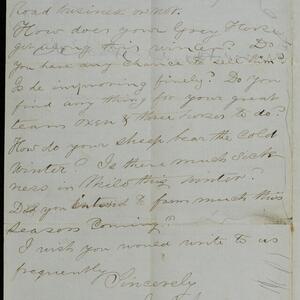 Road business or not.
How does your Grey Horse
get along this winter? Do
you have any chance to sell him?
Is he improving finely? Do you
find any thing for your great
team oxen & three horses to do?
How do your sheep bear the cold
Winter? Is there much Sick-
ness in Milo this winter?
Do you intend to farm much this
Season coming?
I wish you would write to us
frequently
Sincerely